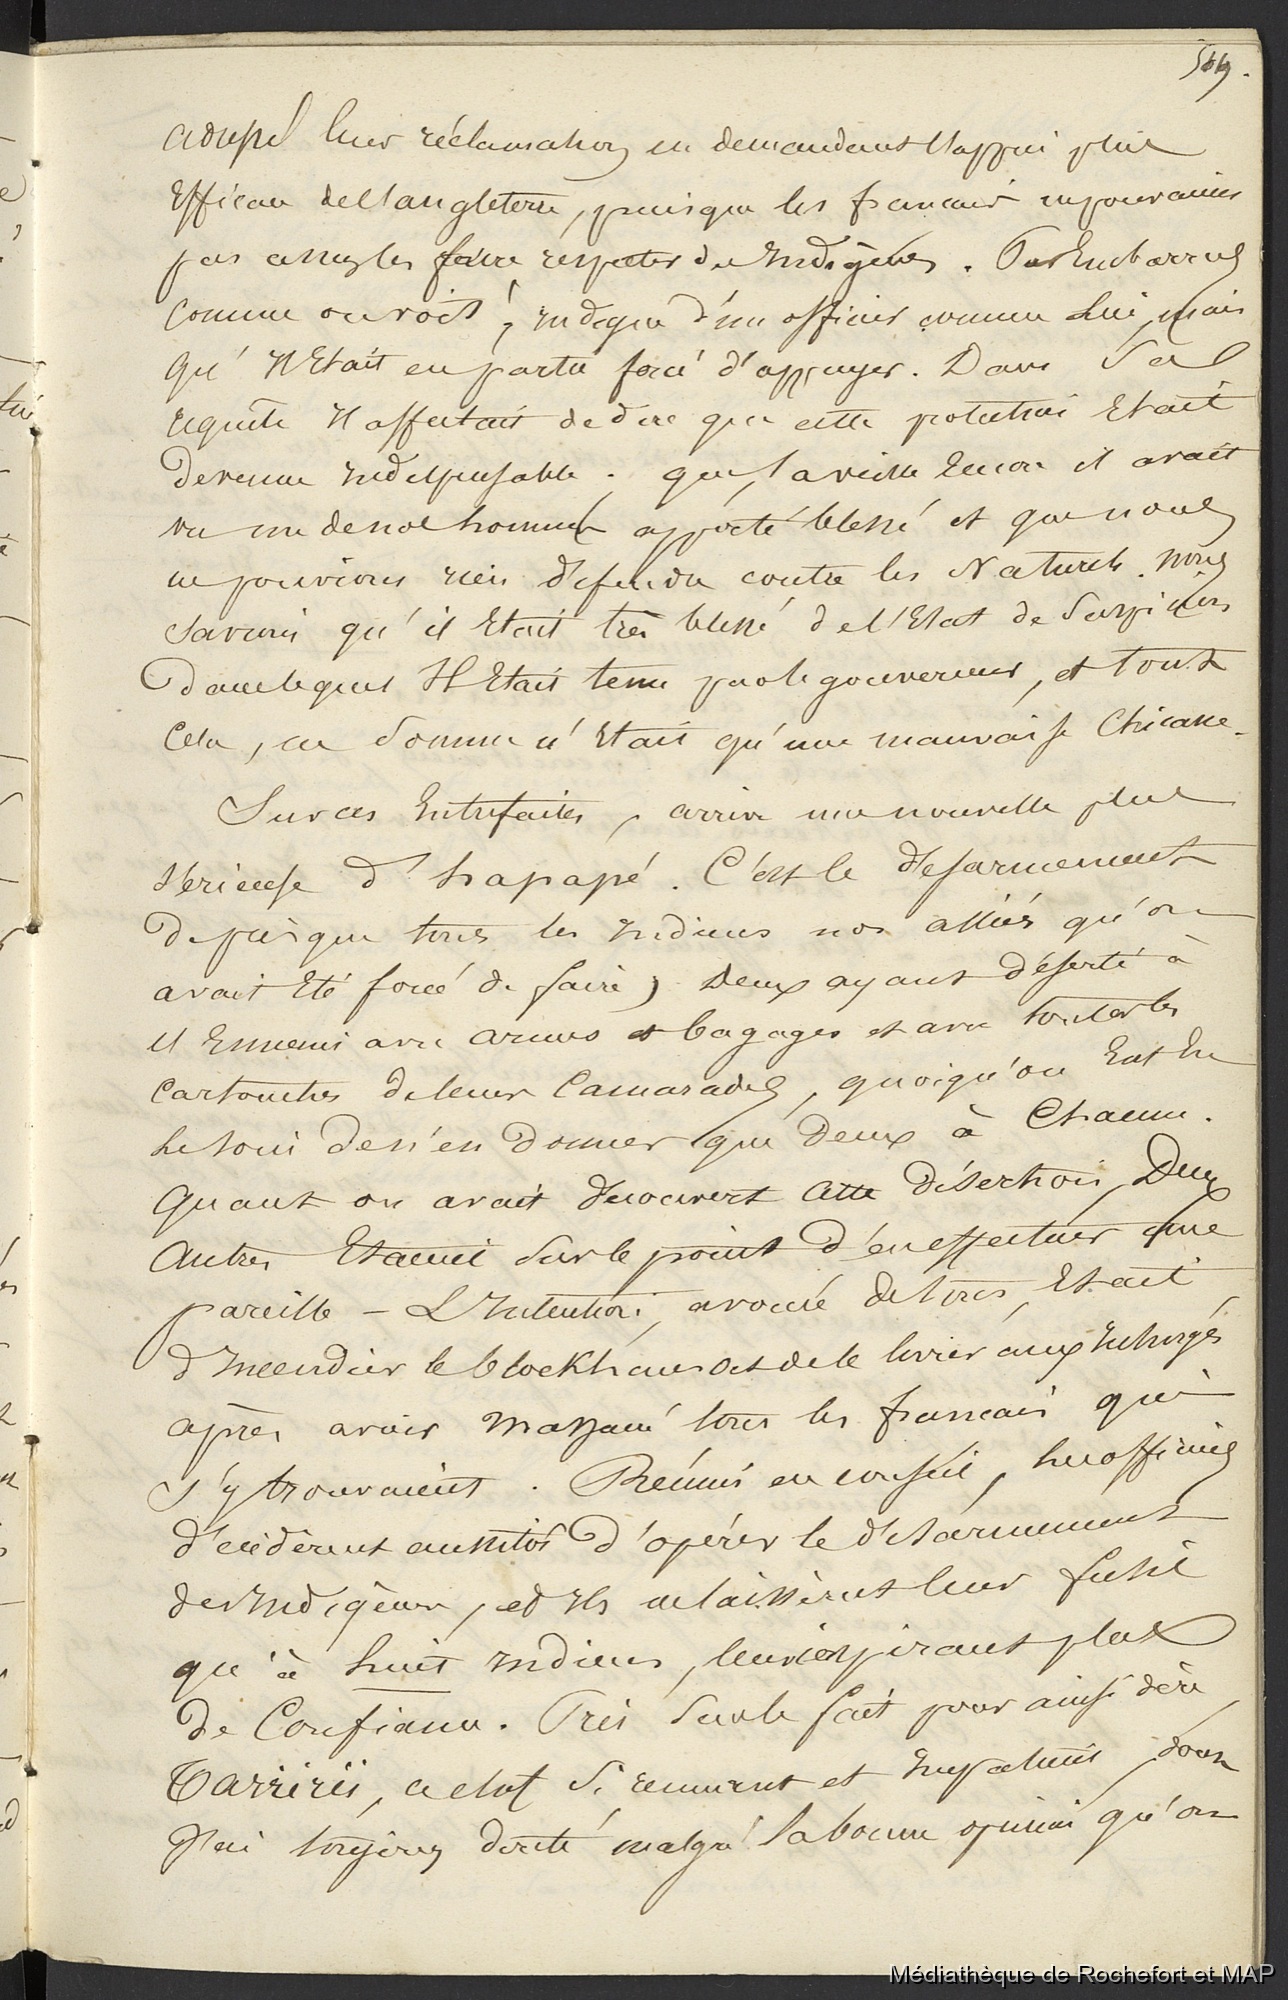 569.
adressé leur réclamation en demandant l'appui plus
Efficace de l'angleterre, puisque les francais ne pouvaient
pas assez les faire respecter des Indigènes.
comme on voit, indigne d'un officier comme lui, mais
qu'Il Etait en partie forcé d'appuyer. Dans sa
requête Il affectait de dire que cette protection Etait
devenue Indispensable ; que la veille Encore il avait
vu un de nos hommes apporté blessé et que nous
ne pouvions rien défendre contre les Naturels. Nous
savions qu'il Etait très blessé de l'Etat de suspicion
dans lequel Il Etait tenu par le gouverneur, et tout
Cela, en somme n'Etait qu'une mauvaise Chicane.
Sur ces Entrefaites, arrive une nouvelle plus
sérieuse d'hapapé. C'est le désarmement
de presque tous les Indiens nos alliés qu'on
avait Eté forcé de faire, Deux ayant déserté à
l'Ennemi avec armes et bagages et avec toutes les
cartouches de leurs Camarades, quoiqu'on Eut Eu
le soin de n'en donner que Deux à Chacun.
Quant on avait découvert cette désertion, Deux
autres Etaient sur le point d'en effectuer une
pareille – L'Intention, avouée de tous, Etait
d'Incendier le blockhaus et de le livrer aux Insurgés
après avoir Massacré tous les francais qui
s'y trouvaient. Réunis en conseil, les officiers
décidèrent aussitôt d'opérer le désarmement
des Indigènes, et Ils ne laissèrent leur fusil
qu'à huit Indiens, leur inspirant plus
de Confiance. Pris sur le fait pour ainsi dire,
Tarririi, ce chef si remuant et Impatient, dont
J'ai toujours douté malgré la bonne opinion qu'on
Médiathèque de Rochefort et MAP